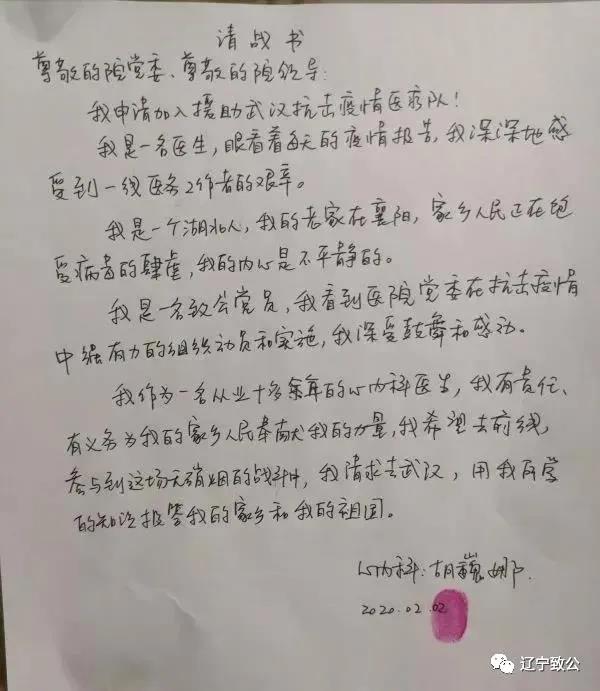 请战书
尊敬的院党委、尊敬的院领导:
我申请加入援助武汉抗击疫情医疗队!
我是一名医生,眼看着每天的疫情报告,我深深地感
受到一线医务工作者的艰辛。
我是一个湖北人,我的老家在襄阳,家乡人民正在饱
受病毒的肆虐,我的内心是不平静的。
我是一名致公党员,我看到医院党委在抗击疫情
中强有力的组织动员和实施,我深受鼓舞和感动。
我作为一名从业十多余年的心内科医生,我有责任、
有义务为我的家乡人民奉献我的力量,我希望去前线,
参与到这场无硝烟的战斗中,我请求去武汉,用我所学
的知识报答我的家乡和我的祖国。
心内科:胡 娜
2020.02.02
辽宁致公